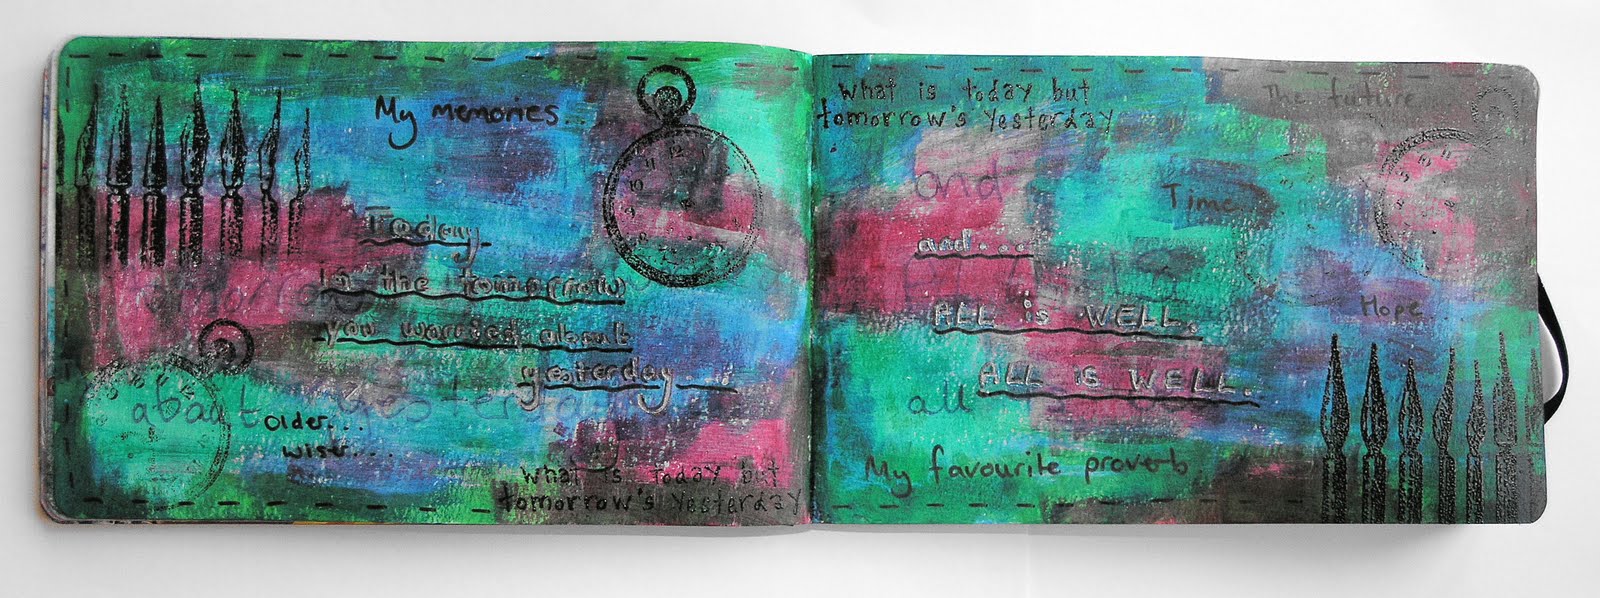 My memories...
Today
is the tomorrow
you worried about
yesterday...
about yesterday
older...
wiser...
What is today but
tomorrow's yesterday
What is today but
tomorrow's yesterday
The future...
and
Time...
and...
Hope...
ALL is WELL.
ALL is WELL.
all
My favourite proverb.